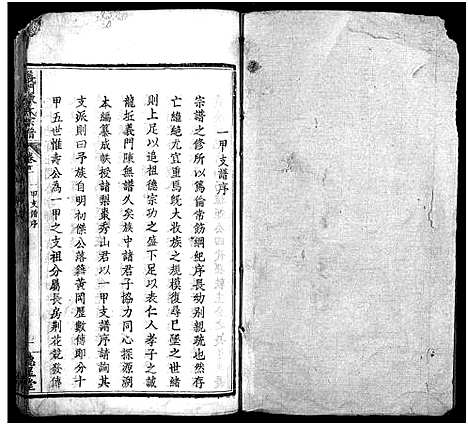 一甲支譜序
宗譜之修所以篤倫常飭綱紀序長幼別親疏也然存
亡繼絕尤宜重焉旣大收族之規模復尋已墜之世緒
則上足以追祖德宗功之盛下足以表仁人孝子之誠
龍坵義門陳無譜久矣族中諸君子協力同心探源溯
本編纂成帙授諸梨棗秀山君以一甲支譜序請詢其
支派則曰予族自明初傑公落籍黃岡歷數傳即分十
甲五世惟壽公為一甲之支祖分屬長房荊花競發傳
義門陳氏宗譜
卷首
一甲支譜序
德星堂